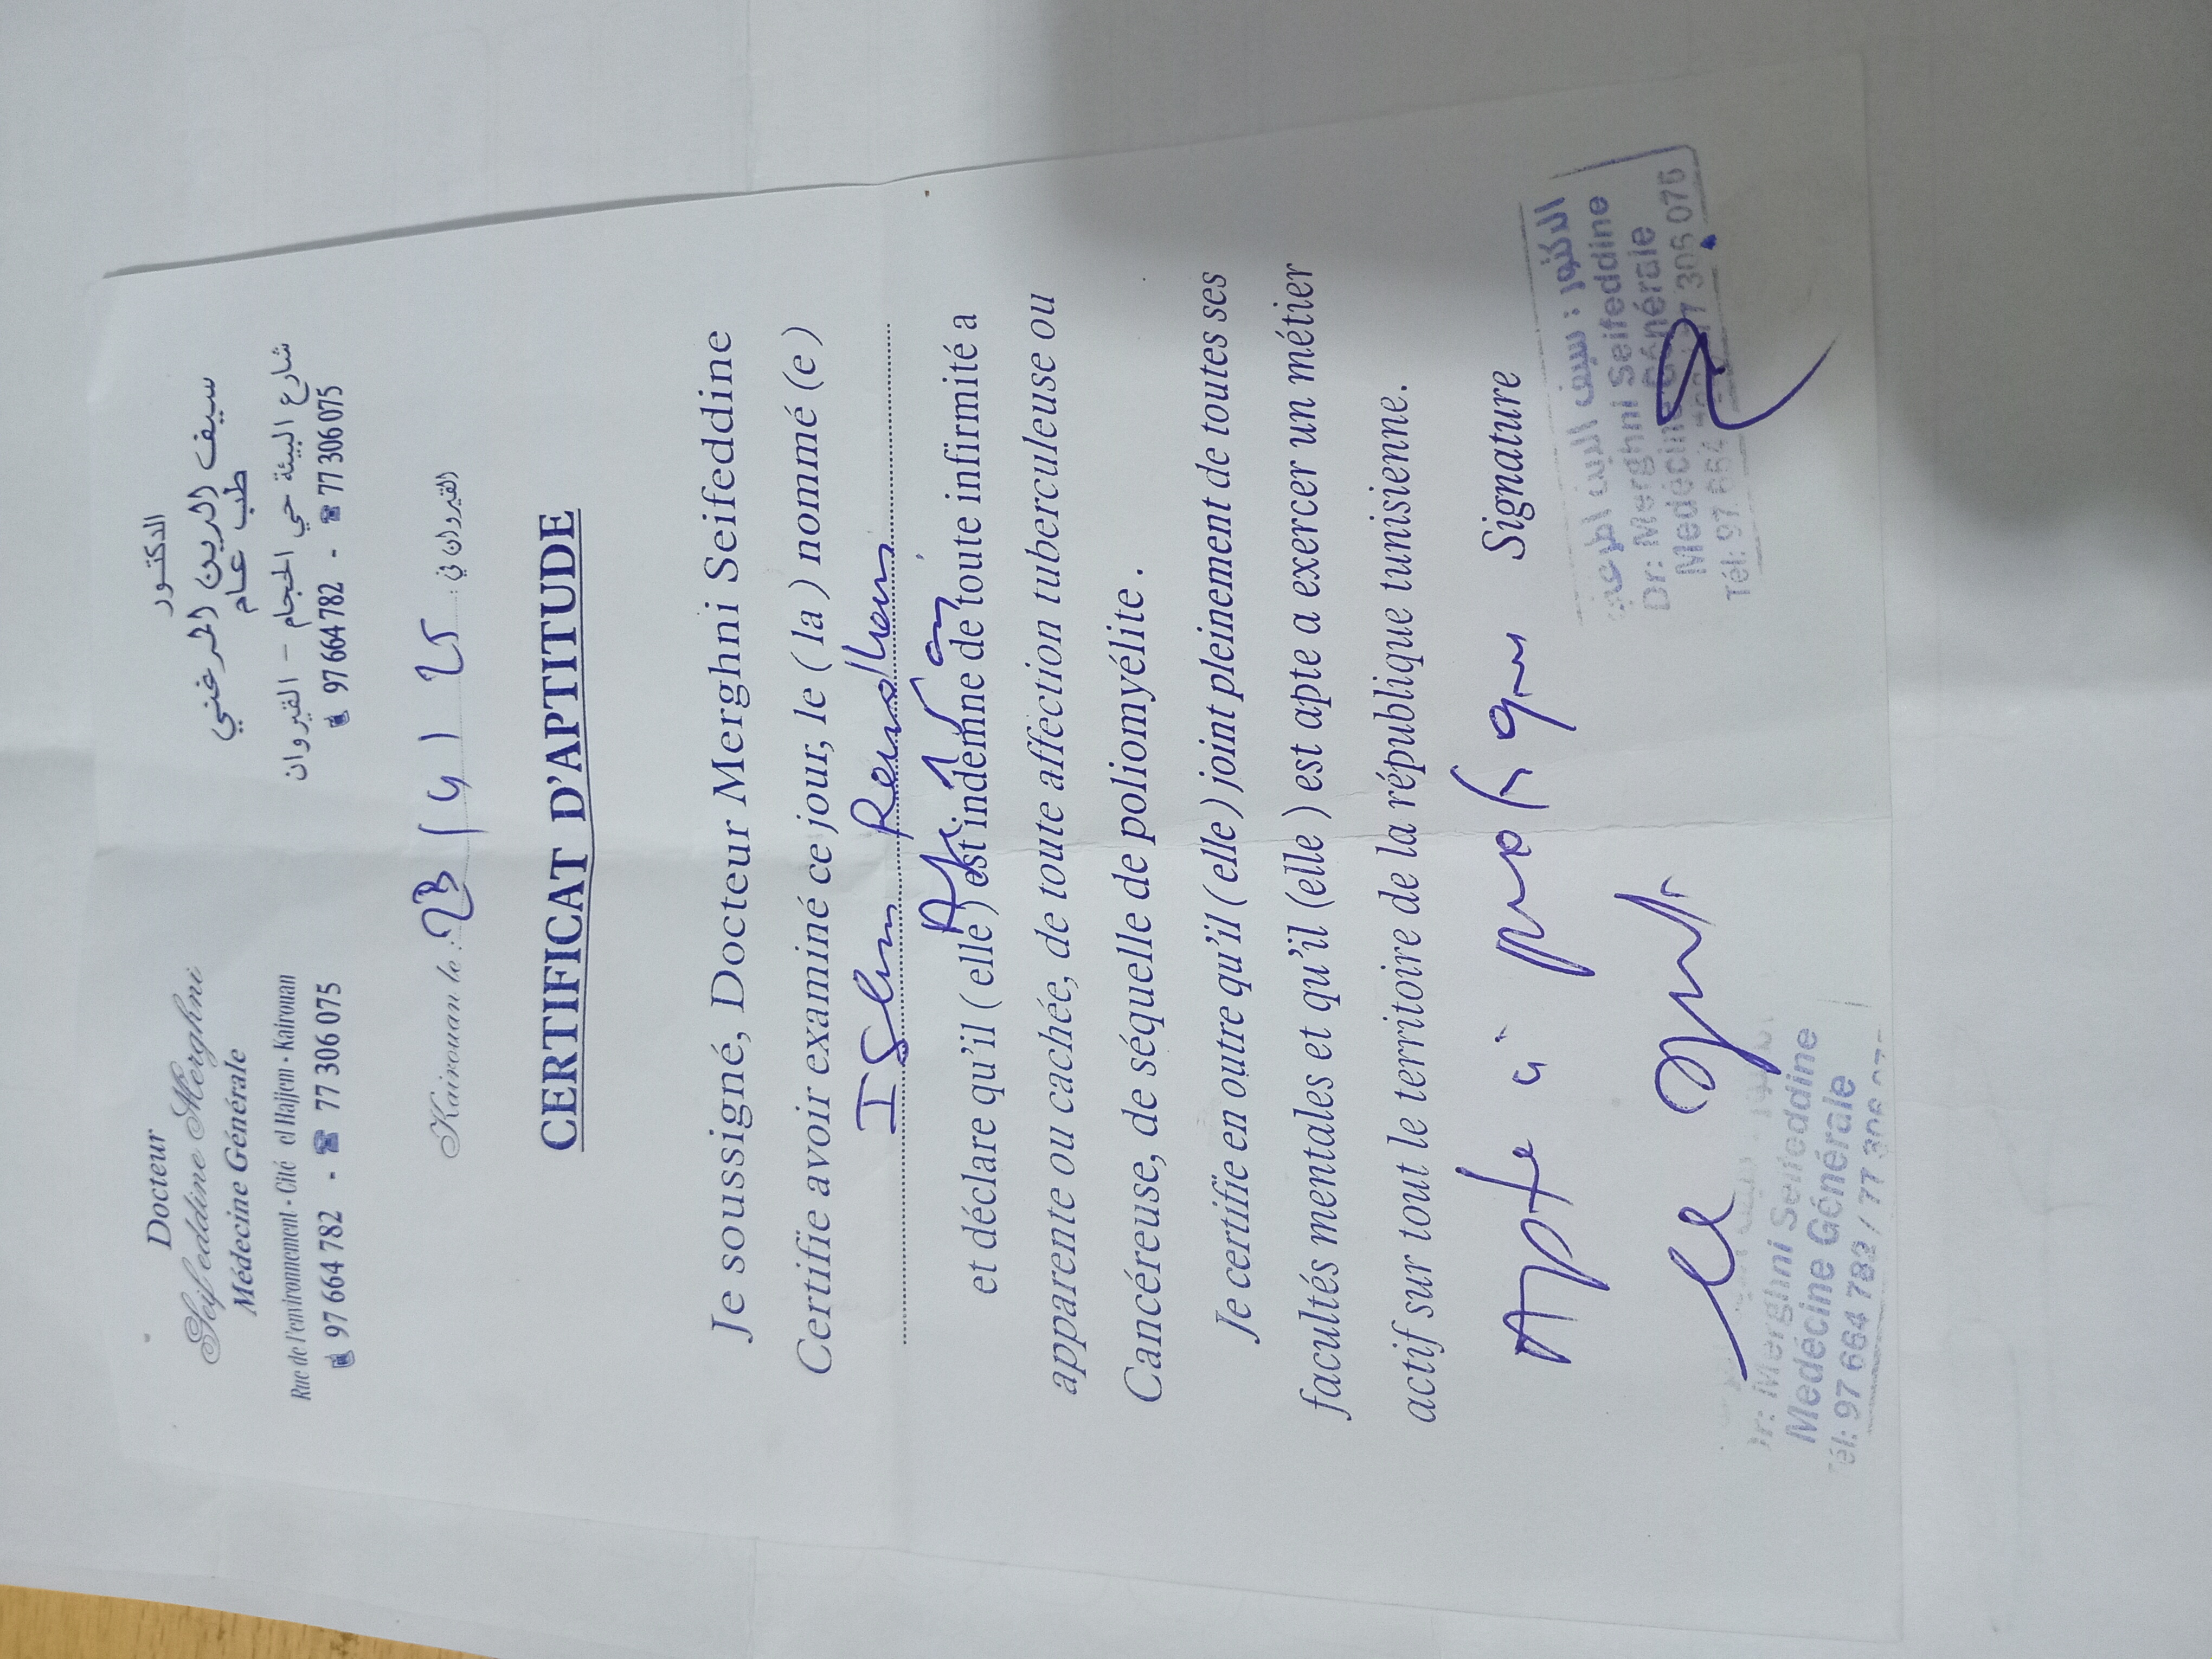 Docteur
Seifeddine Merghni
Médecine Générale
Rue de l'environnement - Cité el Hajjem - Kairouan
97 664 782 - ☎ 77 306 075
الدكتور
سيف الدين المرغني
طب عام
شارع البيئة حي الحجام - القيروان
97 664 782 - ☎ 77 306 075
Kairouan le : 23 / 4 / 25 القيروان في
CERTIFICAT D'APTITUDE
Je soussigné, Docteur Merghni Seifeddine
Certifie avoir examiné ce jour, le ( la ) nommé (e)
et déclare qu'il ( elle ) est indemne de toute infirmité a
apparente ou cachée, de toute affection tuberculeuse ou
Cancéreuse, de séquelle de poliomyélite .
Je certifie en outre qu'il ( elle) joint pleinement de toutes ses
facultés mentales et qu'il (elle ) est apte a exercer un métier
actif sur tout le territoire de la république tunisienne.
Signature
Apte à
le
الدكتور : سيف الدين المرغني
Dr: Merghni Seifeddine
Medécine Générale
Tél: 97 664 782 / 77 306 075
Dr: Merghni Seifeddine
Medécine Générale
Tél: 97 664 782 / 77 306 07